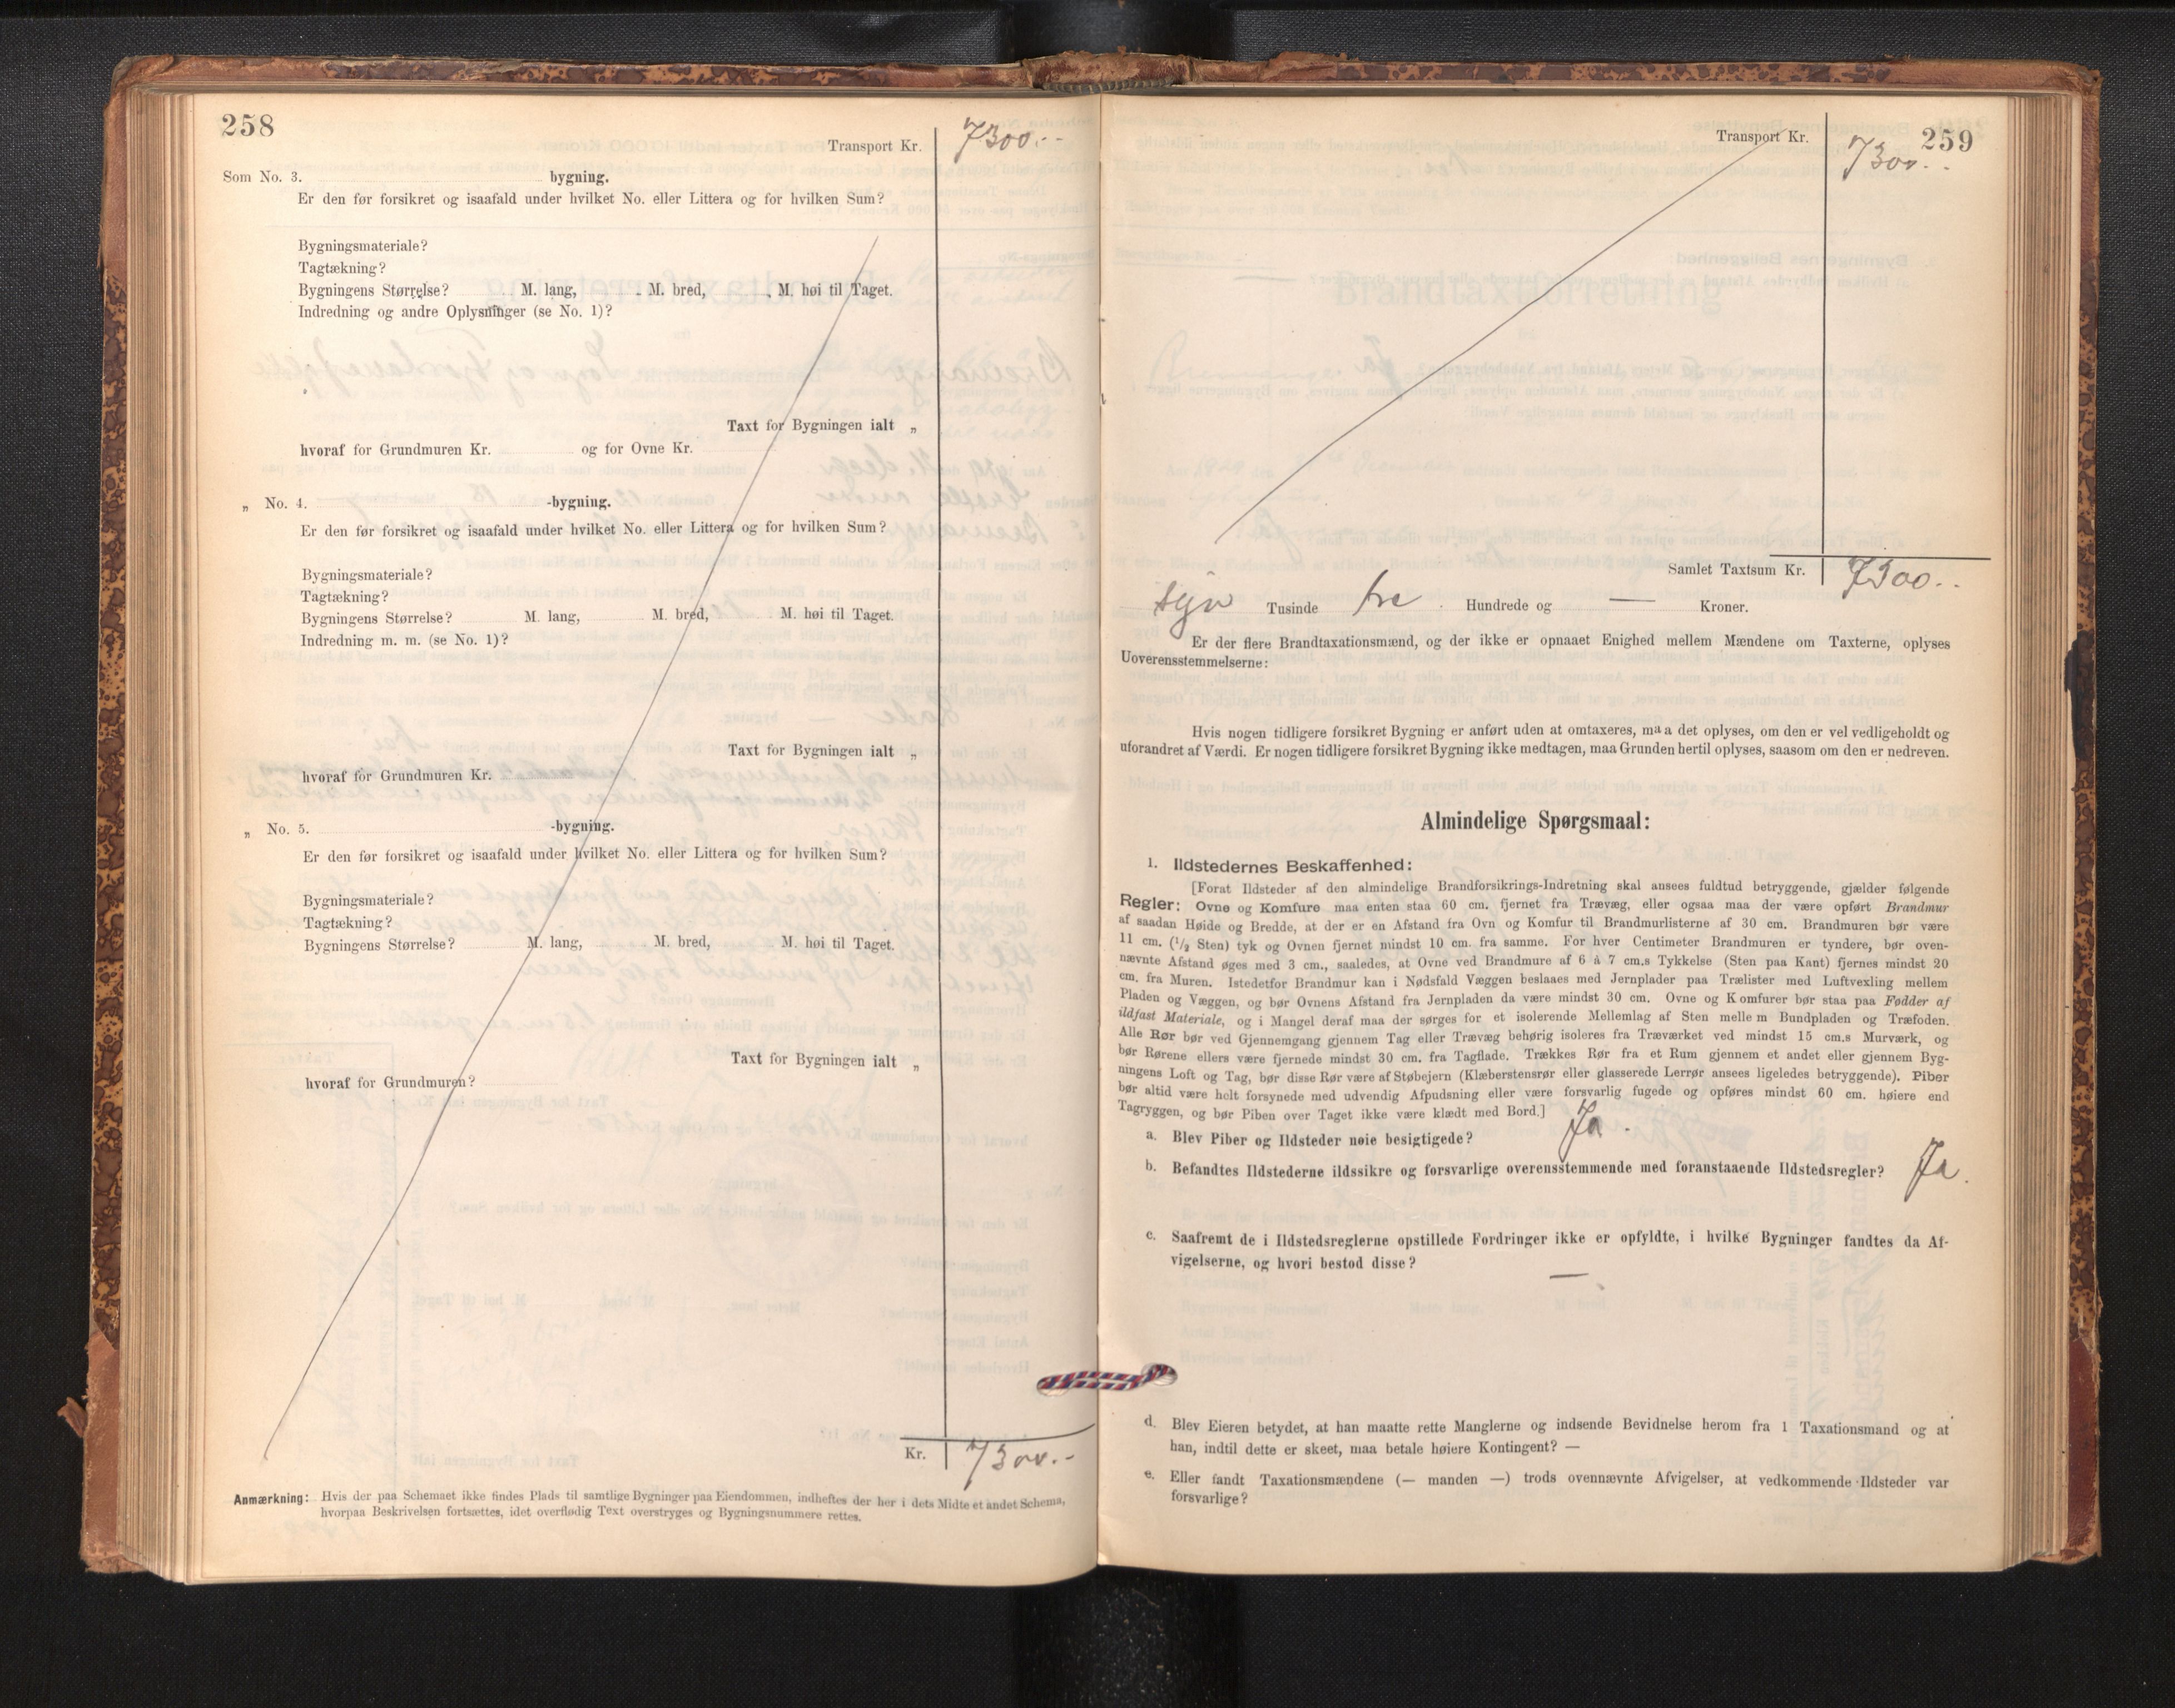 258
Transport Kr. 7300.--
Som No. 3. bygning.
Er den før forsikret og isaafald under hvilket No. eller Littera og for hvilken Sum?
Bygningsmateriale?
Tagtækning?
Bygningens Størrelse? M. lang, M. bred, M. høi til Taget.
Indredning og andre Oplysninger (se No. 1)?
Taxt for Bygningen ialt „
hvoraf for Grundmuren Kr. og for Ovne Kr.
„ No. 4. -bygning.
Er den før forsikret og isaafald under hvilket No. eller Littera og for hvilken Sum?
Bygningsmateriale?
Tagtækning?
Bygningens Størrelse? M. lang, M. bred, M. høi til Taget.
Indredning m. m. (se No. 1)?
Taxt for Bygningen ialt „
hvoraf for Grundmuren Kr.
„ No. 5. -bygning.
Er den før forsikret og isaafald under hvilket No. eller Littera og for hvilken Sum?
Bygningsmateriale?
Tagtækning?
Bygningens Størrelse? M. lang, M. bred, M. høi til Taget.
Taxt for Bygningen ialt „
hvoraf for Grundmuren?
Kr. 7300.--
Anmærkning: Hvis der paa Schemaet ikke findes Plads til samtlige Bygninger paa Eiendommen, indheftes der her i dets Midte et andet Schema,
hvorpaa Beskrivelsen fortsættes, idet overflødig Text overstryges og Bygningsnummere rettes.
259
Transport Kr. 7300.--
Samlet Taxtsum Kr. 7300.--
syv Tusinde tre Hundrede og — Kroner.
Er der flere Brandtaxationsmænd, og der ikke er opnaaet Enighed mellem Mændene om Taxterne, oplyses
Uoverensstemmelserne:
Hvis nogen tidligere forsikret Bygning er anført uden at omtaxeres, maa det oplyses, om den er vel vedligeholdt og
uforandret af Værdi. Er nogen tidligere forsikret Bygning ikke medtagen, maa Grunden hertil oplyses, saasom om den er nedreven.
Almindelige Spørgsmaal:
1. Ildstedernes Beskaffenhed:
[Forat Ildsteder af den almindelige Brandforsikrings-Indretning skal ansees fuldtud betryggende, gjælder følgende
Regler: Ovne og Komfure maa enten staa 60 cm. fjernet fra Trævæg, eller ogsaa maa der være opført Brandmur
af saadan Høide og Bredde, at der er en Afstand fra Ovn og Komfur til Brandmurlisterne af 30 cm. Brandmuren bør være
11 cm. (1/2 Sten) tyk og Ovnen fjernet mindst 10 cm. fra samme. For hver Centimeter Brandmuren er tyndere, bør oven-
nævnte Afstand øges med 3 cm., saaledes, at Ovne ved Brandmure af 6 à 7 cm.s Tykkelse (Sten paa Kant) fjernes mindst 20
cm. fra Muren. Istedetfor Brandmur kan i Nødsfald Væggen beslaaes med Jernplader paa Trælister med Luftvexling mellem
Pladen og Væggen, og bør Ovnens Afstand fra Jernpladen da være mindst 30 cm. Ovne og Komfurer bør staa paa Fødder af
ildfast Materiale, og i Mangel deraf maa der sørges for et isolerende Mellemlag af Sten mellem Bundpladen og Træfoden.
Alle Rør bør ved Gjennemgang gjennem Tag eller Trævæg behørig isoleres fra Træværket ved mindst 15 cm.s Murværk, og
bør Rørene ellers være fjernede mindst 30 cm. fra Tagflade. Trækkes Rør fra et Rum gjennem et andet eller gjennem Byg-
ningens Loft og Tag, bør disse Rør være af Støbejern (Klæberstensrør eller glasserede Lerrør ansees ligeledes betryggende). Piber
bør altid være helt forsynede med udvendig Afpudsning eller være forsvarlig fugede og opføres mindst 60 cm. høiere end
Tagryggen, og bør Piben over Taget ikke være klædt med Bord.]
a. Blev Piber og Ildsteder nøie besigtigede? Ja.
b. Befandtes Ildstederne ildssikre og forsvarlige overensstemmende med foranstaaende Ildstedsregler? Ja.
c. Saafremt de i Ildstedsreglerne opstillede Fordringer ikke er opfyldte, i hvilke Bygninger fandtes da Af-
vigelserne, og hvori bestod disse? —
d. Blev Eieren betydet, at han maatte rette Manglerne og indsende Bevidnelse herom fra 1 Taxationsmand og at
han, indtil dette er skeet, maa betale høiere Kontingent? —
e. Eller fandt Taxationsmændene (— manden —) trods ovennævnte Afvigelser, at vedkommende Ildsteder var
forsvarlige?